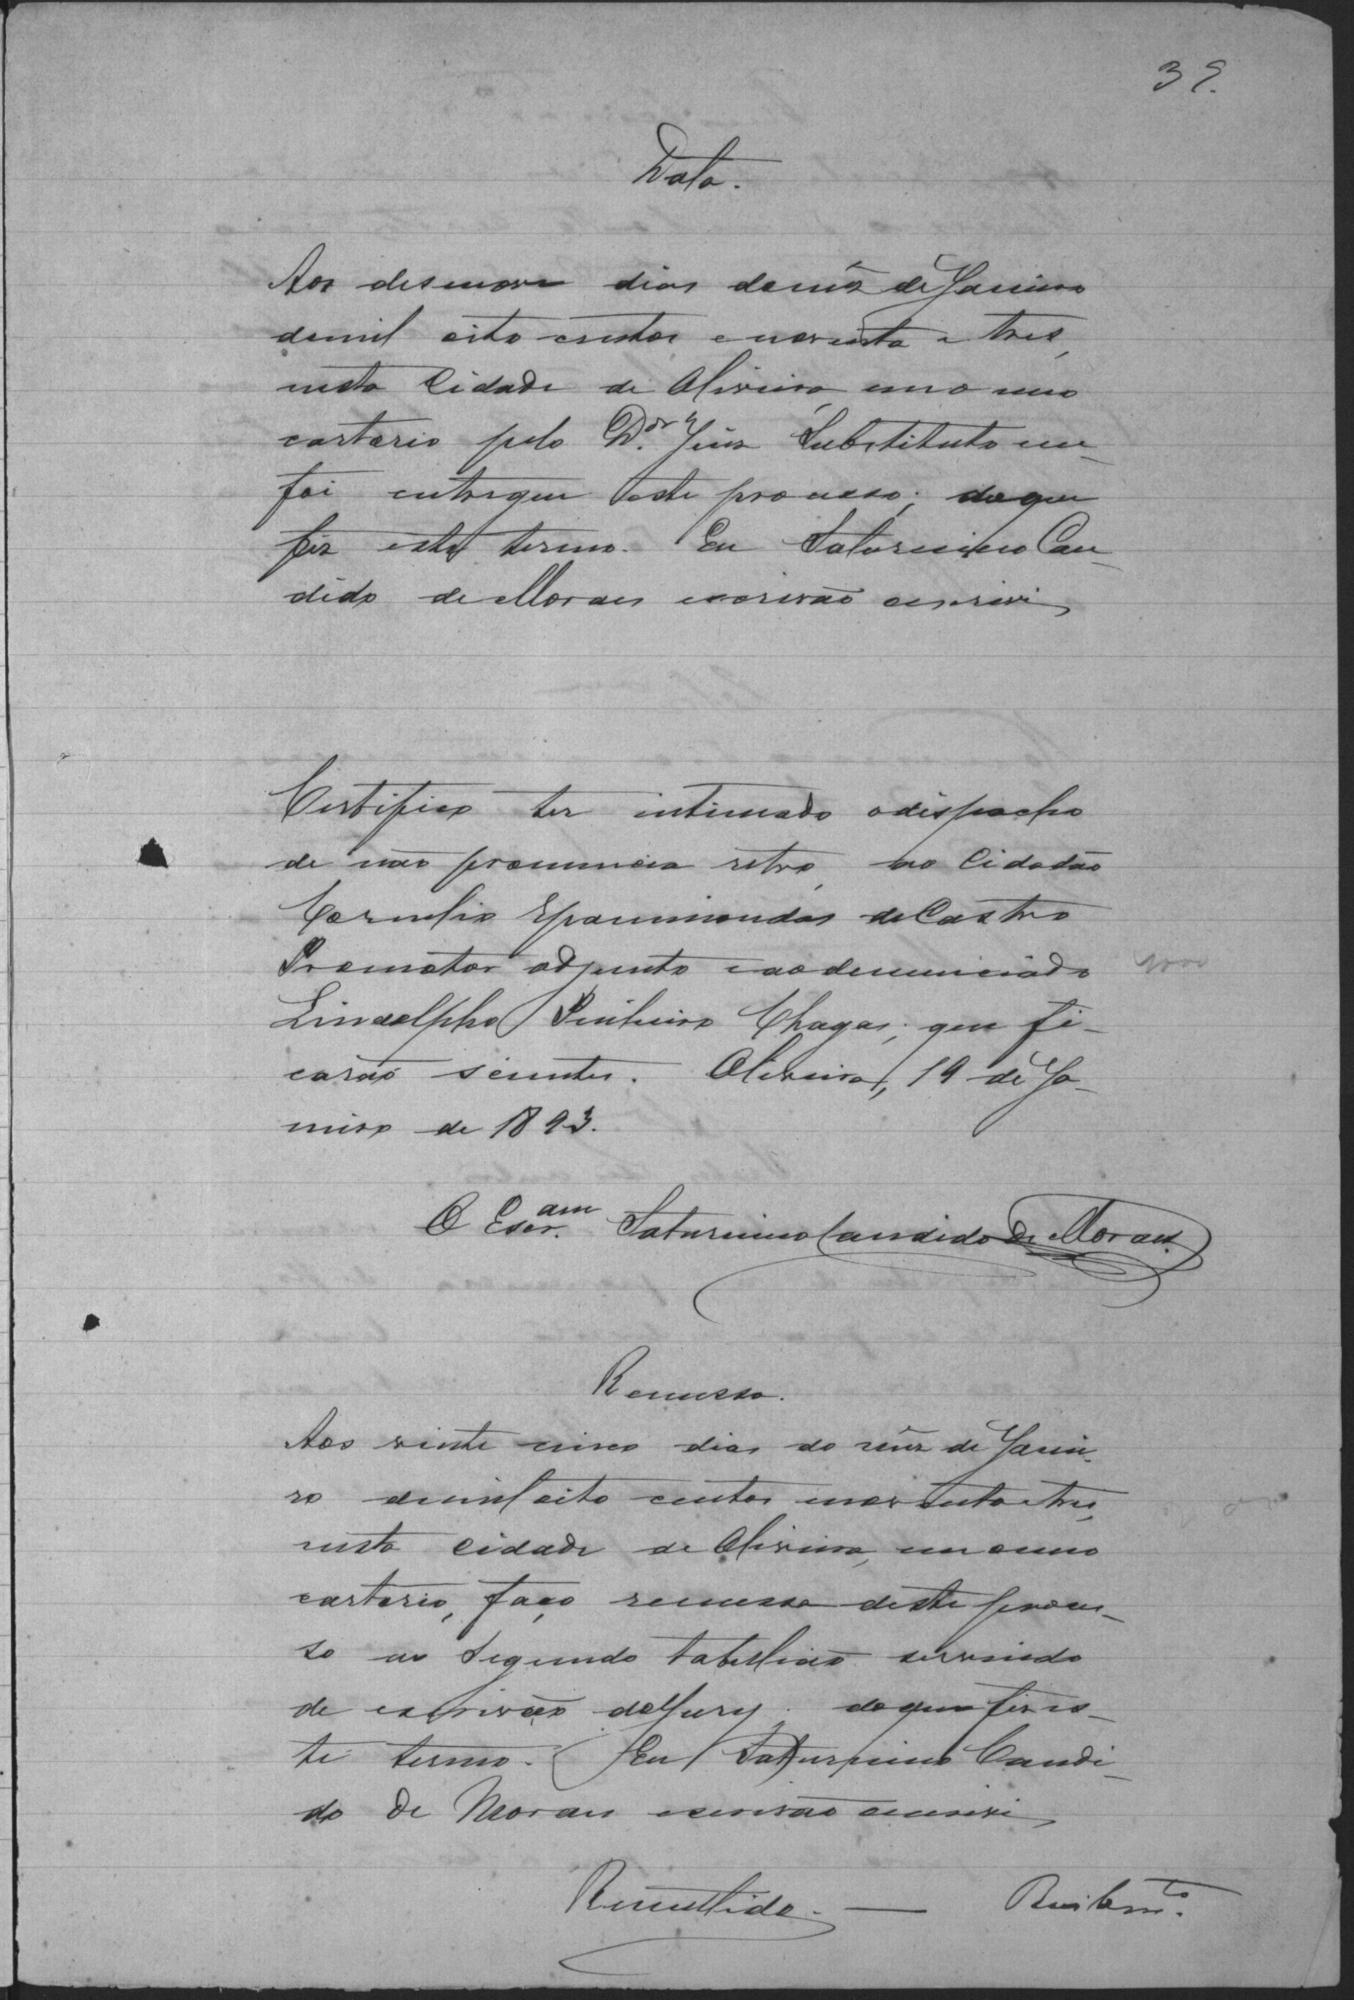 39.
Data.
Aos desenove dias do mez de Janeiro
de mil oito centos e noventa e tres,
nesta Cidade de Oliveira, em o meu
cartorio pelo Dr. Juiz Substituto me
foi entregue este processo; do que
fiz este termo. Eu Saturnino Can-
dido de Moraes escrivão escrevi
Certifico ter intimado o dispacho
de não pronuncia retro, ao Cidadão
Cornelio Epaminondas de Castro
Promotor adjunto e ao denunciado
Lindolpho Pinheiro Chagas; que fi-
carão scientes. Oliveira, 19 de Ja-
neiro de 1893.
O Escr.am Saturnino Candido de Moraes
Remessa.
Aos vinte cinco dias do mez de Janei-
ro de mil oito centos e noventa e tres,
nesta Cidade de Oliveira, em o meu
cartorio, faço remessa deste proces-
so ao Segundo tabellião servindo
de escrivão do Jury; do que fiz es-
te termo. Eu Saturnino Candi-
do de Moraes escrivão escrevi
Remettido. —